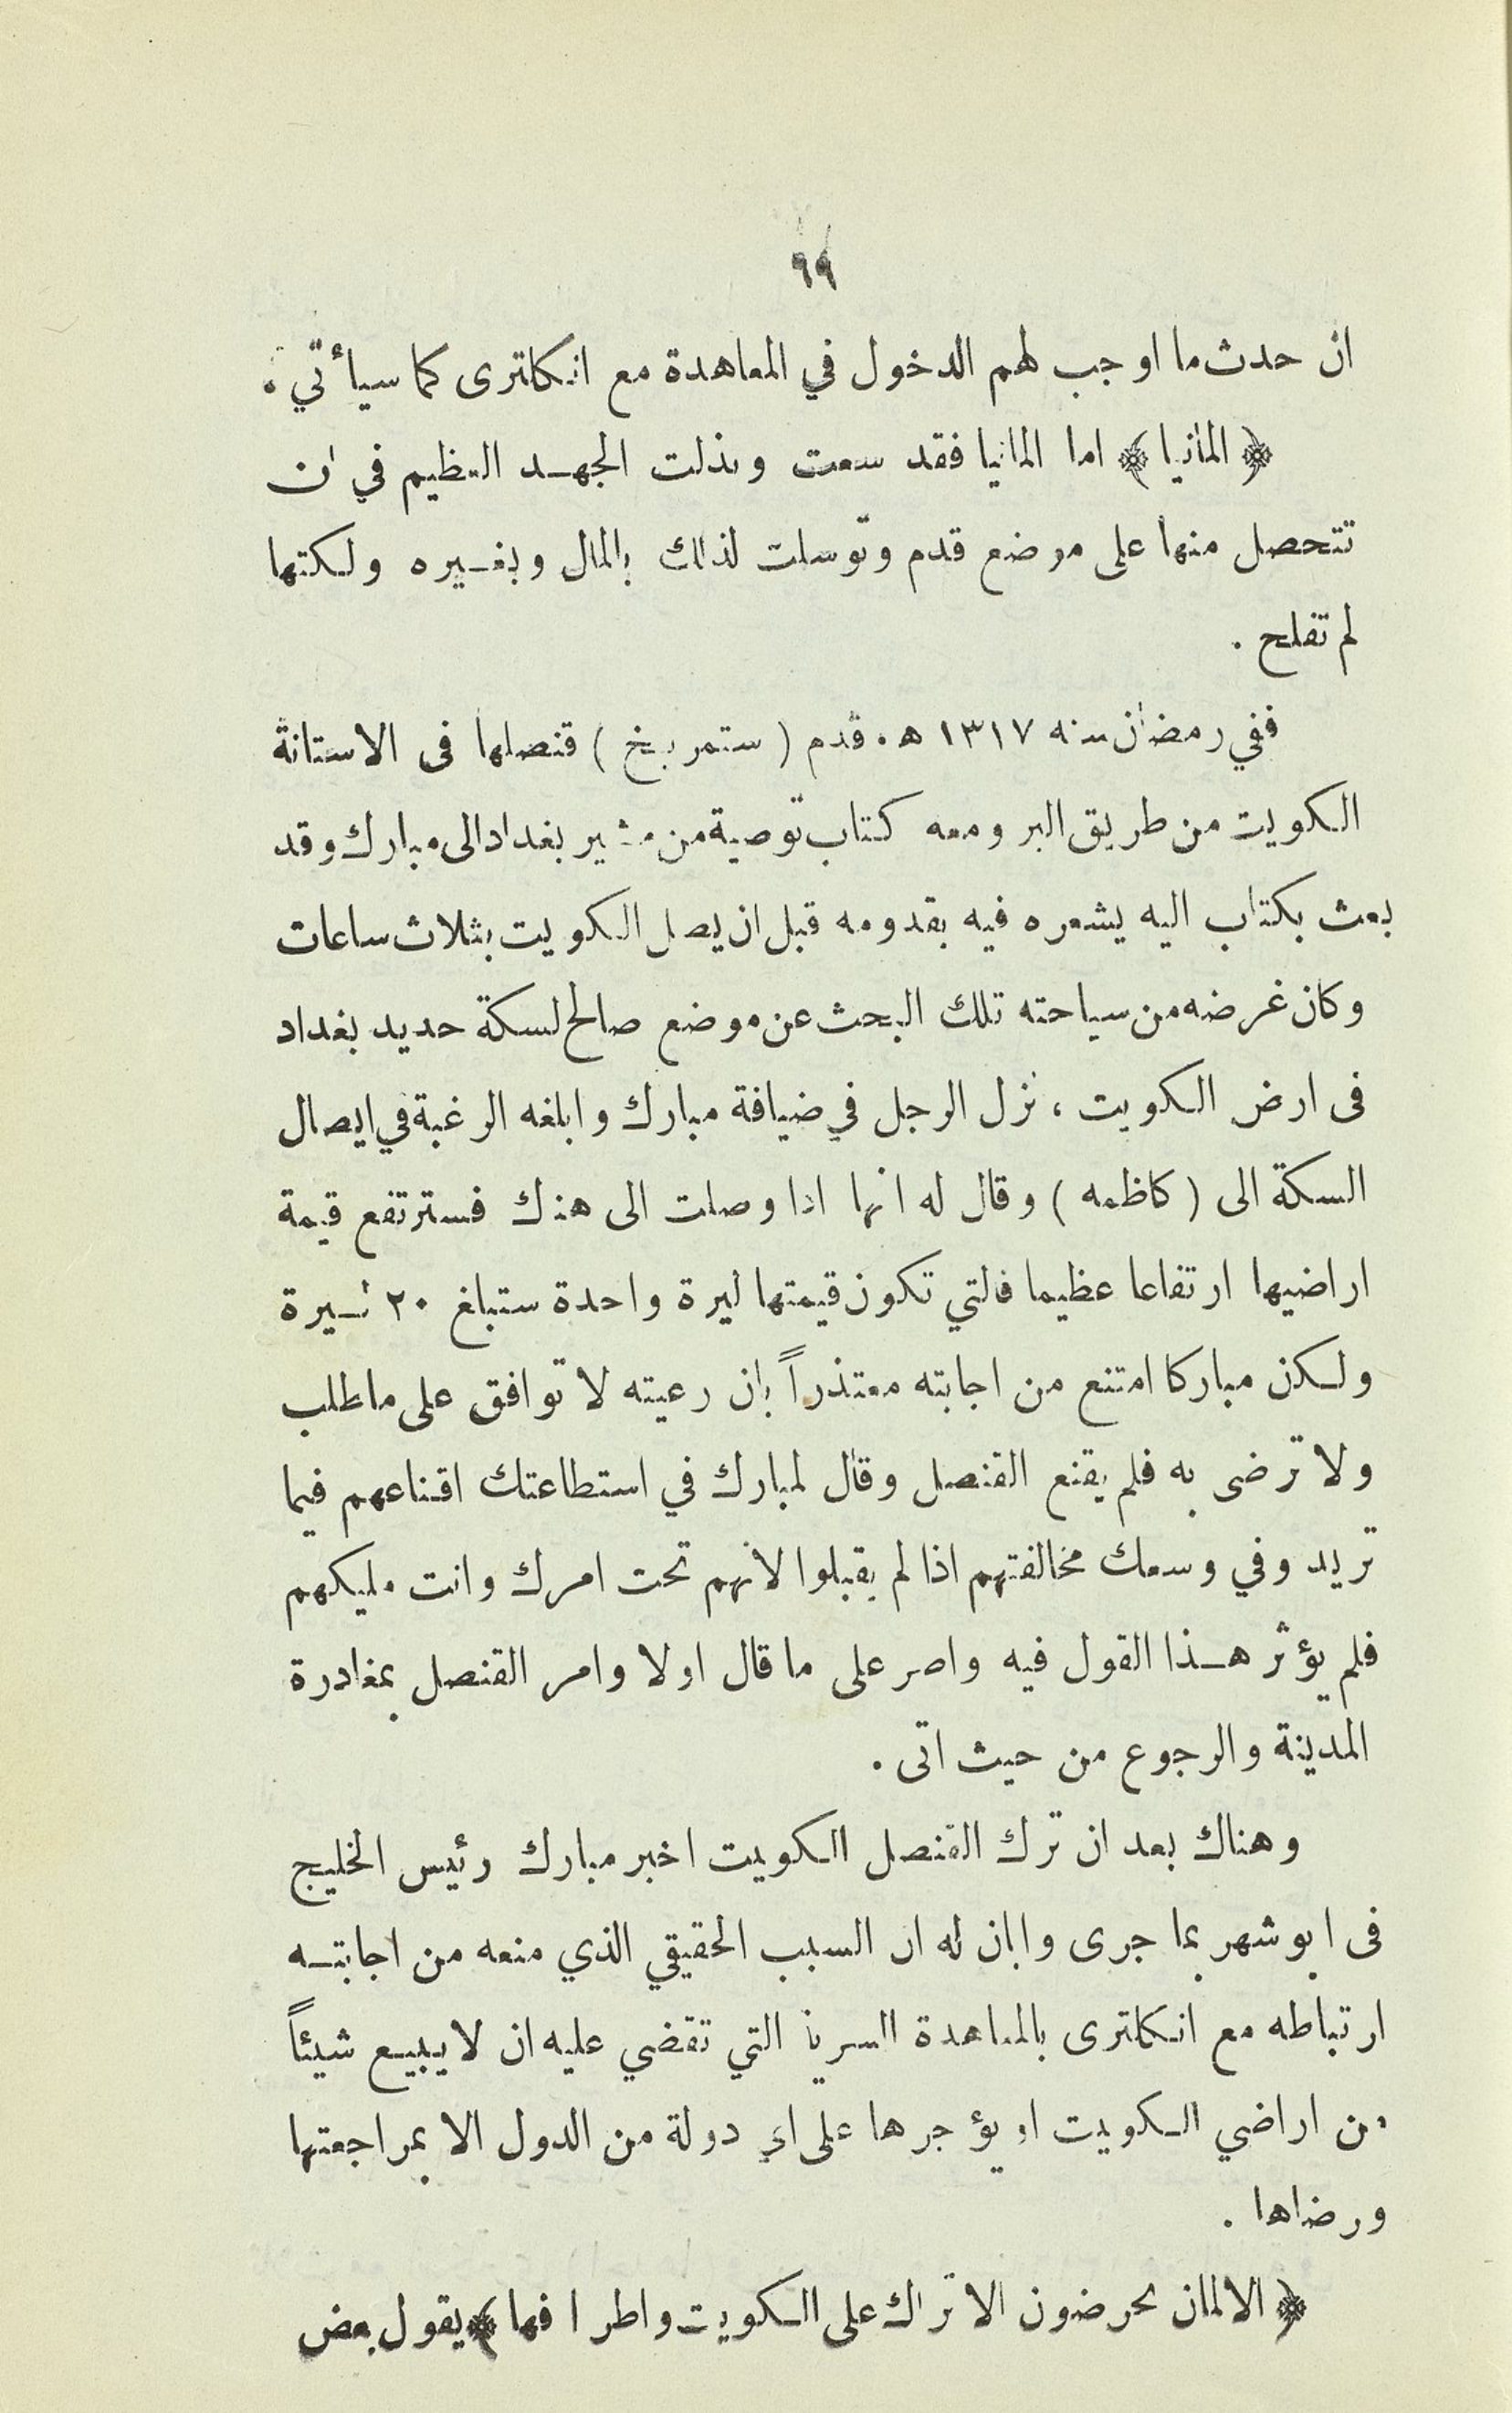 ٩٩
ان حدث ما اوجب لهم الدخول في المعاهدة مع انكلترى كما سيأتي .
﴿ المانيا ﴾ اما المانيا فقد سعت وبذلت الجهد العظيم في ان
تتحصل منها على موضع قدم وتوسلت لذلك بالمال وبغيره ولكنها
لم تفلح .
ففي رمضان سنه ١٣١٧ هـ . قدم ( ستمريخ ) قنصلها فى الاستانة
الكويت من طريق البر ومعه كتاب توصية من مشير بغداد الى مبارك وقد
بعث بكتاب اليه يشعره فيه بقدومه قبل ان يصل الكويت بثلاث ساعات
وكان غرضه من سياحته تلك البحث عن موضع صالح لسكة حديد بغداد
فى ارض الكويت ، نزل الرجل في ضيافة مبارك وابلغه الرغبة في ايصال
السكة الى ( كاظمه ) وقال له انها اذا وصلت الى هناك فسترتفع قيمة
اراضيها ارتفاعا عظيما فالتي تكون قيمتها ليرة واحدة ستبلغ ٢٠ ليرة
ولكن مباركا امتنع من اجابته معتذراً بان رعيته لا توافق على ما طلب
ولا ترضى به فلم يقنع القنصل وقال لمبارك في استطاعتك اقناعهم فيما
تريد وفي وسعك مخالفتهم اذا لم يقبلوا لانهم تحت امرك وانت مليكهم
فلم يؤثر هذا القول فيه واصر على ما قال اولا وامر القنصل بمغادرة
المدينة والرجوع من حيث اتى .
وهناك بعد ان ترك القنصل الكويت اخبر مبارك رئيس الخليج
فى ابوشهر بما جرى وابان له ان السبب الحقيقي الذي منعه من اجابته
ارتباطه مع انكلترى بالمعاهدة السرية التي تقضي عليه ان لا يبيع شيئاً
من اراضي الكويت او يؤجرها على اي دولة من الدول الا بمراجعتها
ورضاها .
﴿ الالمان يحرضون الاتراك على الكويت واطرافها ﴾ يقول بعض